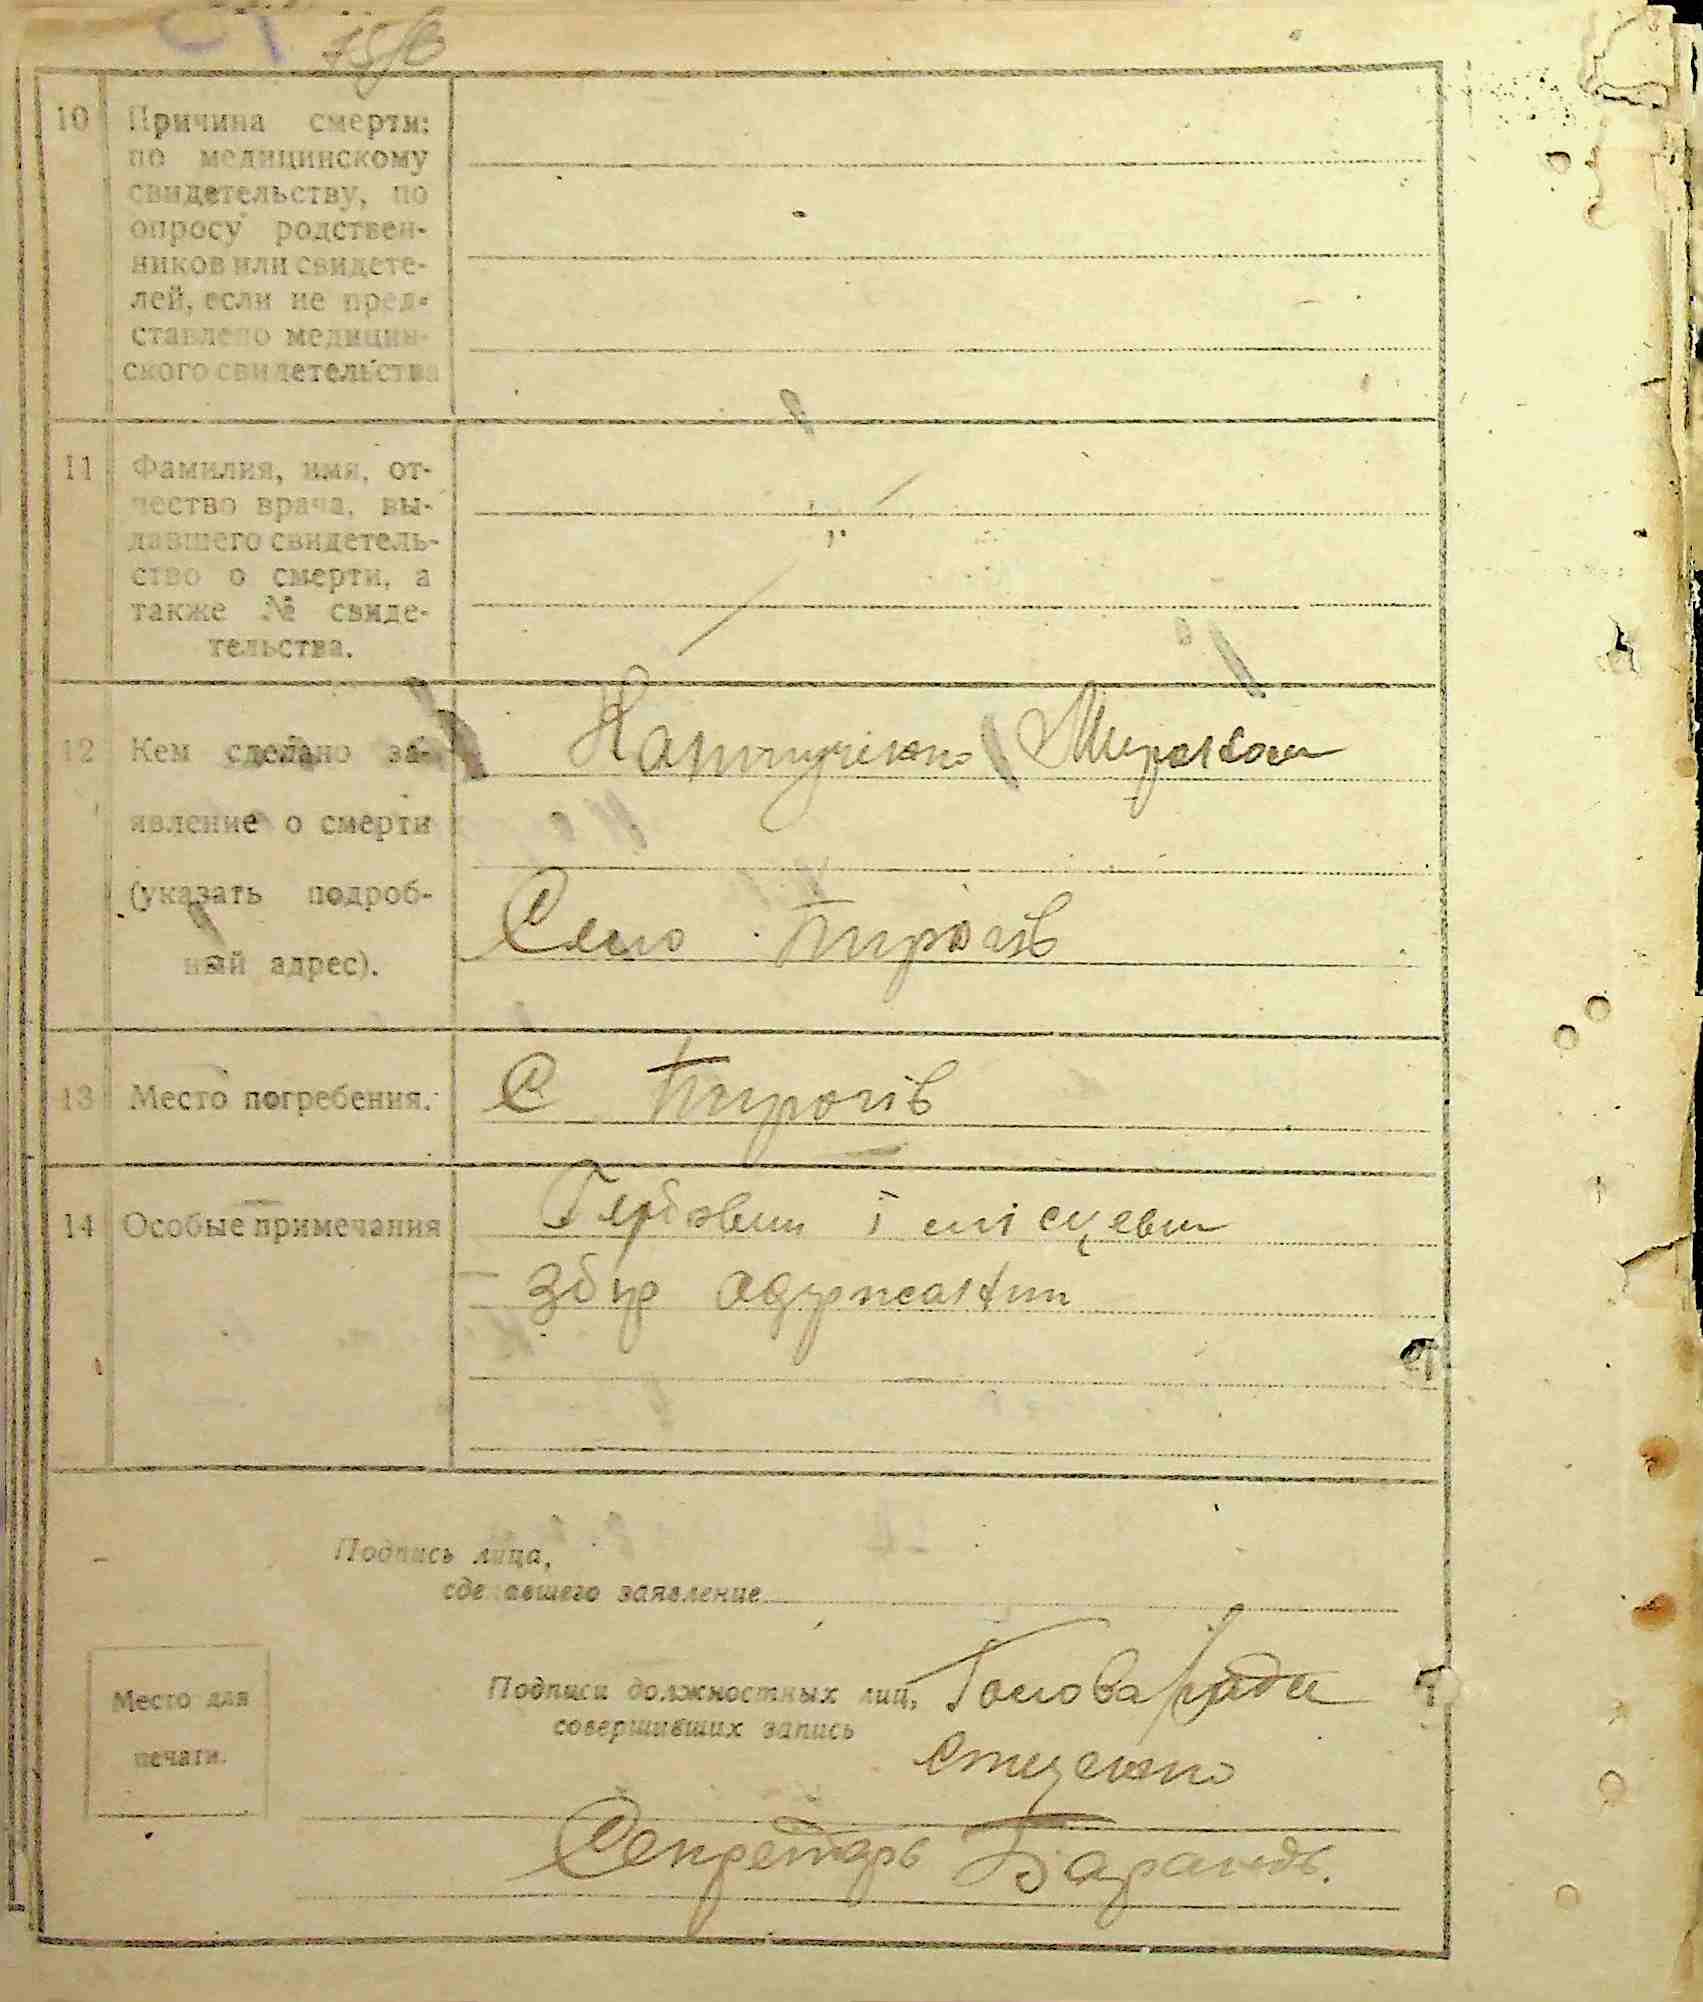 10 Причина смерти:
по медицинскому
свидетельству, по
опросу родствен-
ников или свидете-
лей, если не пред-
ставлено медицин-
ского свидетельства
11 Фамилия, имя, от-
чество врача, вы-
давшего свидетель-
ство о смерти, а
также № свиде-
тельства.
12 Кем сделано за-
явление о смерти
(указать подроб-
ный адрес).
Село Пирогів
13 Место погребения.
С Пирогів
14 Особые примечания
Гербовий і місцевий
збір одержали
Подпись лица,
сделавшего заявление
Подписи должностных лиц, Голова Ради
совершивших запись
Стеценко
Место для
печати.
Секретарь